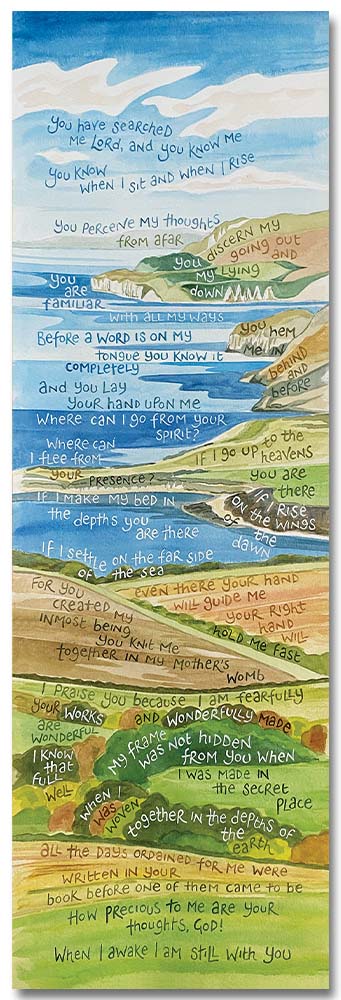 You have searched
me Lord, and you know me
You know
when I sit and when I rise
You perceive my thoughts
from afar
You discern my
going out
and
my lying
down
You
are
familiar
with all my ways
Before a word is on my
tongue you know it
completely
You hem
me in
behind
and
before
and you lay
your hand upon me
Where can I go from your
spirit?
Where can
I flee from
your
presence?
If I go up to the
heavens
you are
there
If I make my bed in
the depths you
are there
If I rise
on the wings
of the
dawn
If I settle on the far side
of the sea
even there your hand
will guide me
your right
hand
will
hold me fast
For you
created my
inmost being
you knit me
together in my mother's
womb
I praise you because I am fearfully
and wonderfully made
your works
are
wonderful
I know
that
full
well
my frame
was not hidden
from you when
I was made in
the secret
place
when I
was
woven
together in the depths of
the
earth
all the days ordained for me were
written in your
book before one of them came to be
How precious to me are your
thoughts, God!
When I awake I am still with you